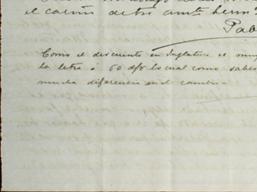 el cariño de tus amte herms
Pab
Como el descuento en Inglaterra es muy
la letra á 60 d/v lo cual como sabes
mucha diferencia en el cambio